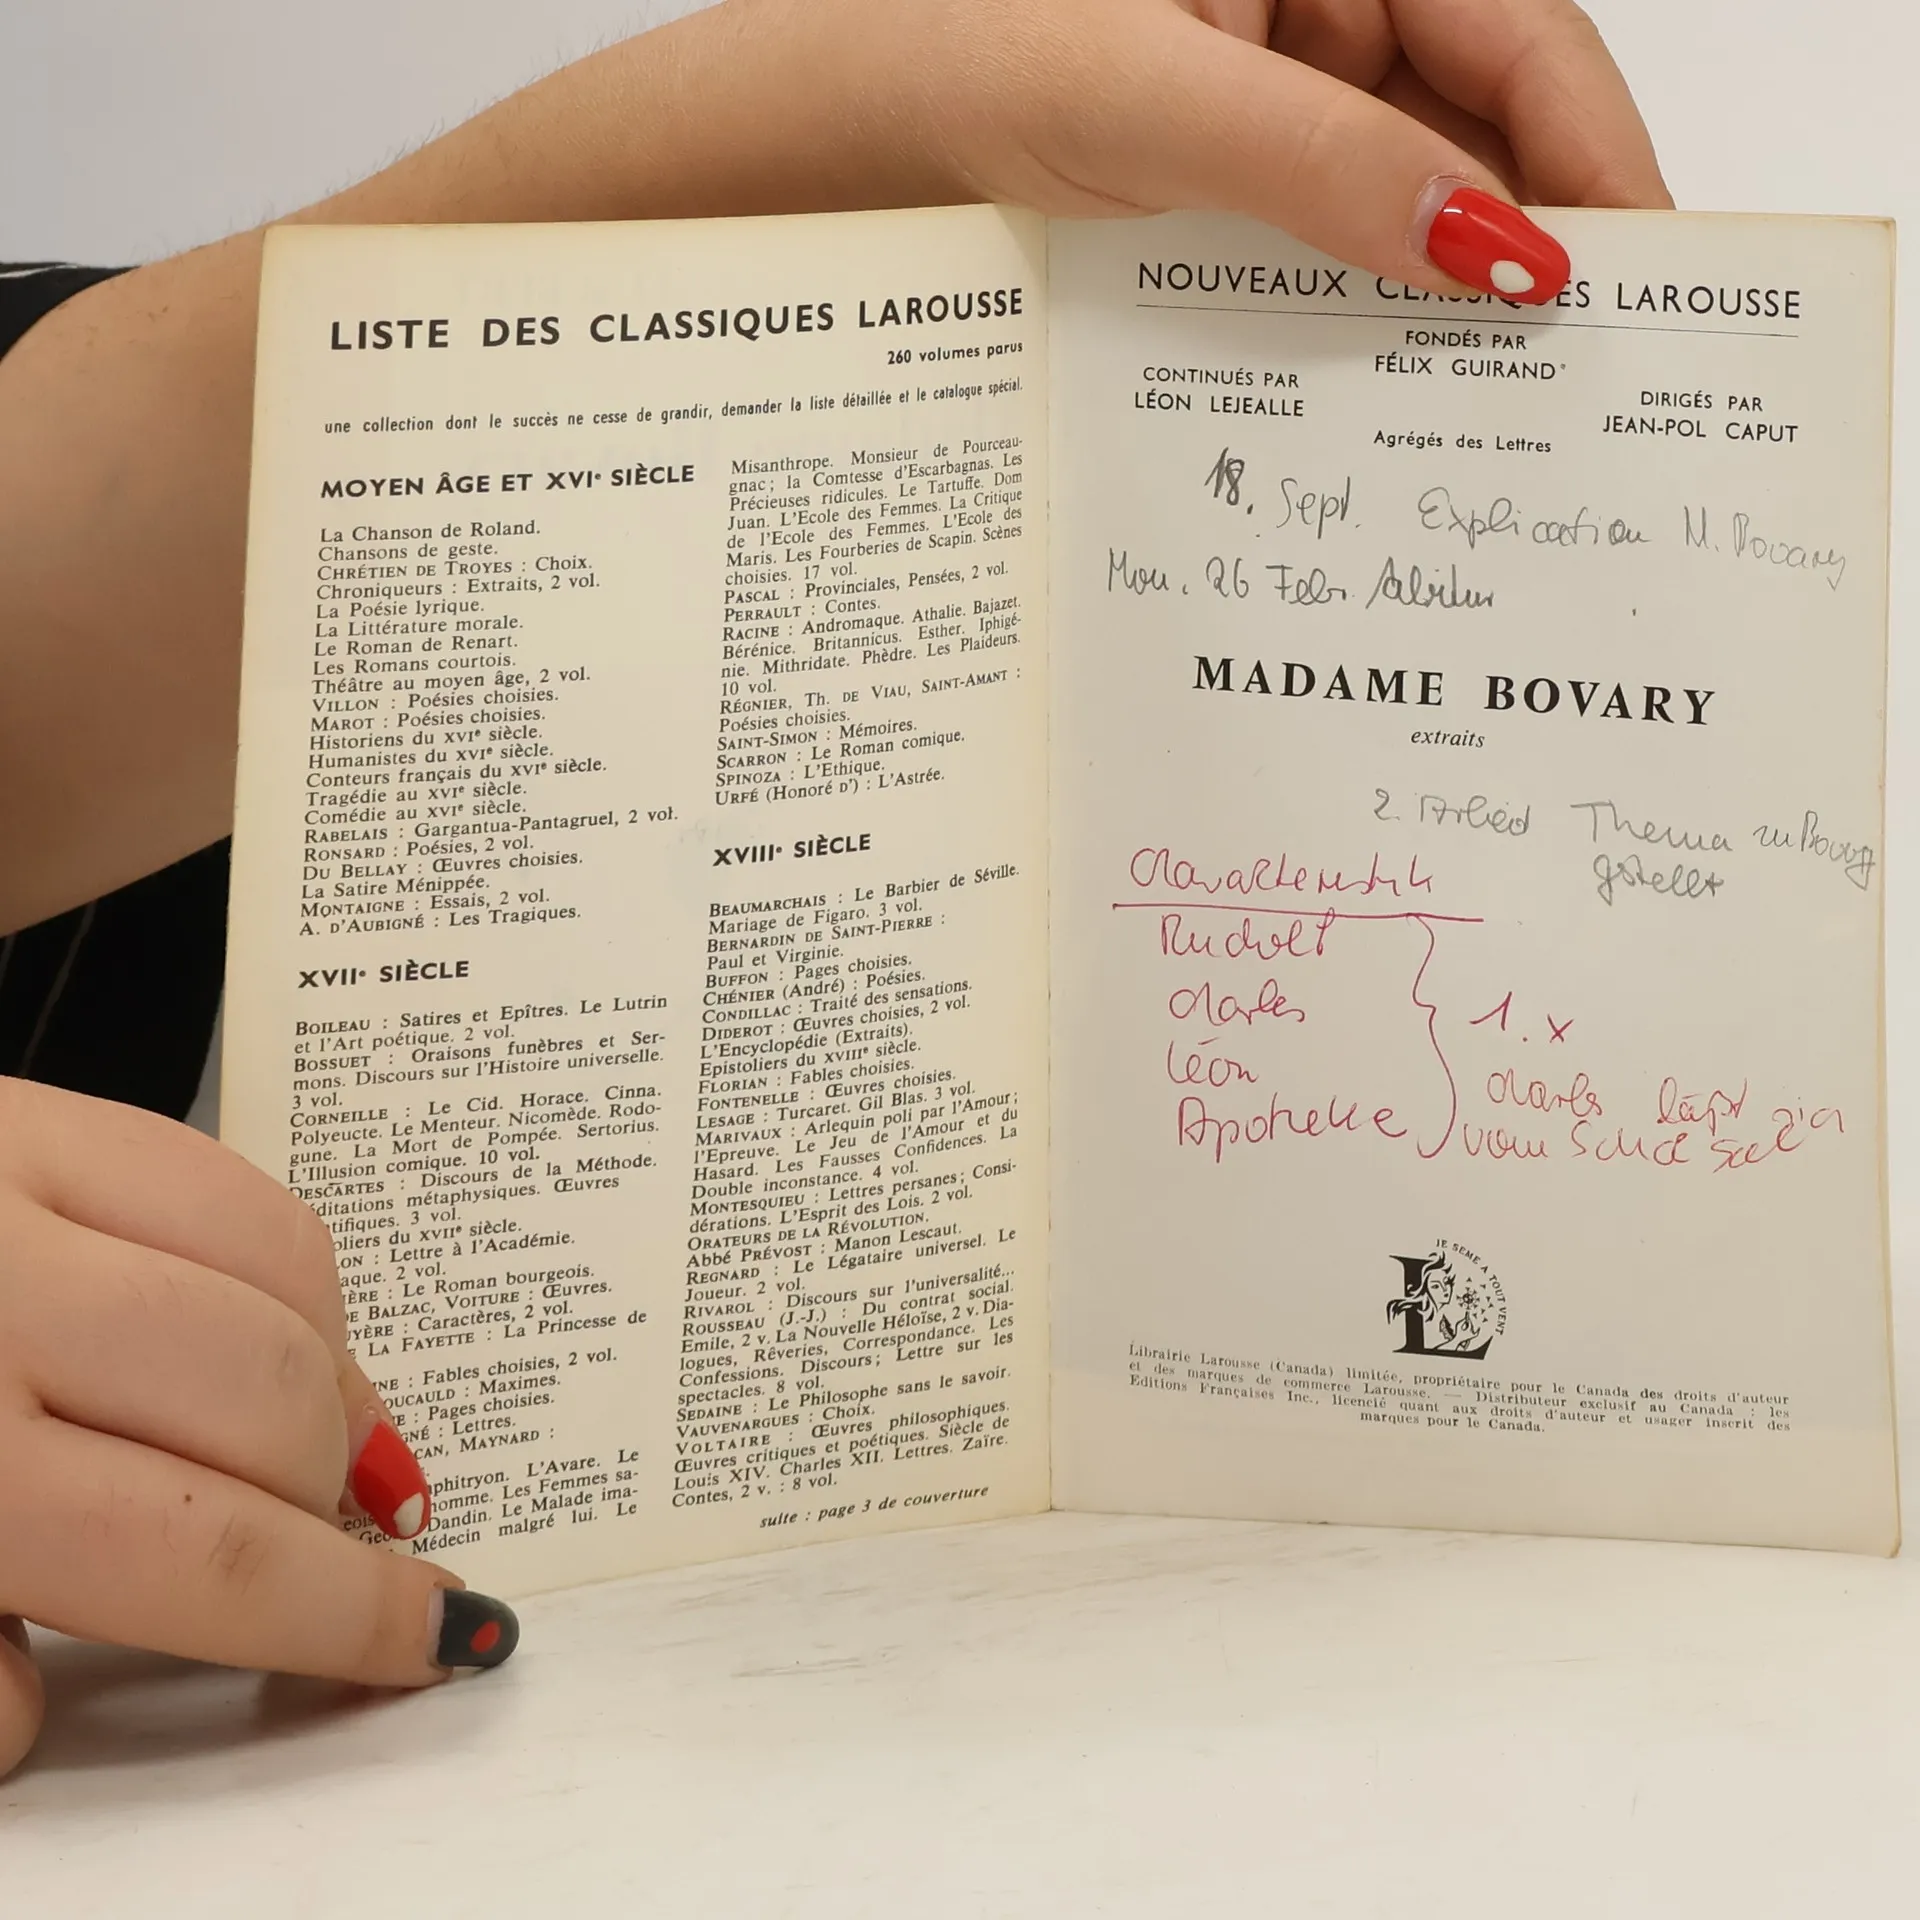 LISTE DES CLASSIQUES LAROUSSE
260 volumes parus
une collection dont le succès ne cesse de grandir, demander la liste détaillée et le catalogue spécial.
MOYEN ÂGE ET XVIe SIÈCLE
La Chanson de Roland.
Chansons de geste.
CHRÉTIEN DE TROYES : Choix.
Chroniqueurs : Extraits, 2 vol.
La Poésie lyrique.
La Littérature morale.
Le Roman de Renart.
Les Romans courtois.
Théâtre au moyen âge, 2 vol.
VILLON : Poésies choisies.
MAROT : Poésies choisies.
Historiens du XVIe siècle.
Humanistes du XVIe siècle.
Conteurs français du XVIe siècle.
Tragédie au XVIe siècle.
Comédie au XVIe siècle.
RABELAIS : Gargantua-Pantagruel, 2 vol.
RONSARD : Poésies, 2 vol.
DU BELLAY : Œuvres choisies.
La Satire Ménippée.
MONTAIGNE : Essais, 2 vol.
A. D'AUBIGNÉ : Les Tragiques.
XVIIe SIÈCLE
BOILEAU : Satires et Epîtres. Le Lutrin
et l'Art poétique. 2 vol.
BOSSUET : Oraisons funèbres et Ser-
mons. Discours sur l'Histoire universelle.
3 vol.
CORNEILLE : Le Cid. Horace. Cinna.
Polyeucte. Le Menteur. Nicomède. Rodo-
gune. La Mort de Pompée. Sertorius.
L'Illusion comique. 10 vol.
DESCARTES : Discours de la Méthode.
éditations métaphysiques. Œuvres
tifiques. 3 vol.
oliers du XVIIe siècle.
LON : Lettre à l'Académie.
aque. 2 vol.
IÈRE : Le Roman bourgeois.
DE BALZAC, VOITURE : Œuvres.
UYÈRE : Caractères, 2 vol.
E LA FAYETTE : La Princesse de
INE : Fables choisies, 2 vol.
OUCAULD : Maximes.
E : Pages choisies.
GNÉ : Lettres.
CAN, MAYNARD :
phitryon. L'Avare. Le
homme. Les Femmes sa-
Dandin. Le Malade ima-
Médecin malgré lui. Le
Misanthrope. Monsieur de Pourceau-
gnac ; la Comtesse d'Escarbagnas. Les
Précieuses ridicules. Le Tartuffe. Dom
Juan. L'Ecole des Femmes. La Critique
de l'Ecole des Femmes. L'Ecole des
Maris. Les Fourberies de Scapin. Scènes
choisies. 17 vol.
PASCAL : Provinciales, Pensées, 2 vol.
PERRAULT : Contes.
RACINE : Andromaque. Athalie. Bajazet.
Bérénice. Britannicus. Esther. Iphigé-
nie. Mithridate. Phèdre. Les Plaideurs.
10 vol.
RÉGNIER, TH. DE VIAU, SAINT-AMANT :
Poésies choisies.
SAINT-SIMON : Mémoires.
SCARRON : Le Roman comique.
SPINOZA : L'Ethique.
URFÉ (Honoré D') : L'Astrée.
XVIIIe SIÈCLE
BEAUMARCHAIS : Le Barbier de Séville.
Mariage de Figaro. 3 vol.
BERNARDIN DE SAINT-PIERRE :
Paul et Virginie.
BUFFON : Pages choisies.
CHÉNIER (André) : Poésies.
CONDILLAC : Traité des sensations.
DIDEROT : Œuvres choisies, 2 vol.
L'Encyclopédie (Extraits).
Epistoliers du XVIIIe siècle.
FLORIAN : Fables choisies.
FONTENELLE : Œuvres choisies.
LESAGE : Turcaret. Gil Blas. 3 vol.
MARIVAUX : Arlequin poli par l'Amour ;
l'Epreuve. Le Jeu de l'Amour et du
Hasard. Les Fausses Confidences. La
Double inconstance. 4 vol.
MONTESQUIEU : Lettres persanes ; Consi-
dérations. L'Esprit des Lois. 2 vol.
ORATEURS DE LA RÉVOLUTION.
Abbé PRÉVOST : Manon Lescaut.
REGNARD : Le Légataire universel. Le
Joueur. 2 vol.
RIVAROL : Discours sur l'universalité...
ROUSSEAU (J.-J.) : Du contrat social.
Emile, 2 v. La Nouvelle Héloïse, 2 v. Dia-
logues, Rêveries, Correspondance. Les
Confessions. Discours ; Lettre sur les
spectacles. 8 vol.
SEDAINE : Le Philosophe sans le savoir.
VAUVENARGUES : Choix.
VOLTAIRE : Œuvres philosophiques.
Œuvres critiques et poétiques. Siècle de
Louis XIV. Charles XII. Lettres. Zaïre.
Contes, 2 v. : 8 vol.
suite : page 3 de couverture
NOUVEAUX CLASSIQUES LAROUSSE
FONDÉS PAR
FÉLIX GUIRAND
CONTINUÉS PAR
LÉON LEJEALLE
DIRIGÉS PAR
JEAN-POL CAPUT
Agrégés des Lettres
18. Sept. Explication M. Bovary
Mon. 26 Febr. Abitur
MADAME BOVARY
extraits
2. Arbeit Thema zu Bovary
gestellt
Charakteristik
Rudolf
Charles
Léon
Apotheke
1. x
Charles läßt sich
vom Schicksal
JE SÈME À TOUT VENT
Librairie Larousse (Canada) limitée, propriétaire pour le Canada des droits d'auteur
et des marques de commerce Larousse. — Distributeur exclusif au Canada : les
Editions Françaises Inc., licencié quant aux droits d'auteur et usager inscrit des
marques pour le Canada.